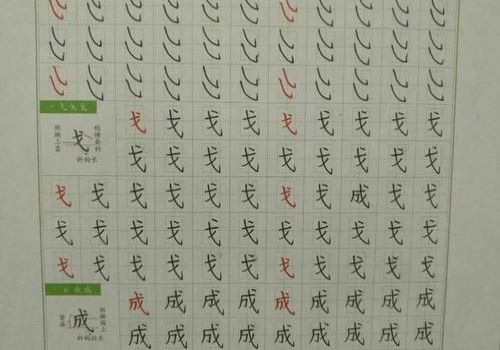 戈 戈 戈 戈 戈 戈 戈 戈 戈
戈
斜钩长
戈 戈 戈 戈 戈 戈 戈 戈 戈
戈 戈 戈 戈 戈 戈 戈 戈 成 戈 戈
戈 戈 戈 戈 戈 戈 戈 戈 戈 戈 戈
戈 戈 戈 戈 戈 戈 戈 戈 戈 戈 戈
成 成 成 成 成 成 成 成 成
成
斜钩拉长
成 成 成 成 成 成 成 成 成